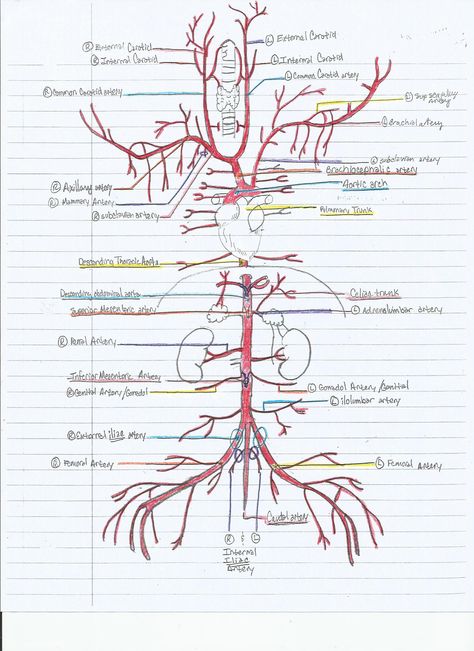 Ⓡ External Carotid
Ⓛ External Carotid
Ⓡ Internal Carotid
Ⓛ Internal Carotid
Ⓛ Common Carotid artery
Ⓡ Common Carotid artery
Ⓛ artery
Ⓛ Brachial artery
Ⓛ subclavian artery
Brachiocephalic artery
Ⓡ Axillary artery
Aortic arch
Mammary Artery
Ⓡ subclavian artery
Pulmonary Trunk
Descending Thoracic Aorta
Descending abdominal aorta
Celiac trunk
Superior Mesenteric artery
Ⓛ Adrenolumbar artery
Ⓡ Renal Artery
Inferior Mesenteric Artery
Ⓡ Genital Artery/Gonadal
Ⓛ Gonadal Artery/Genital
Ⓛ iliolumbar artery
Ⓡ External iliac artery
Ⓡ Femoral Artery
Ⓛ Femoral Artery
Caudal artery
Ⓡ & Ⓛ
Internal
Iliac
Artery